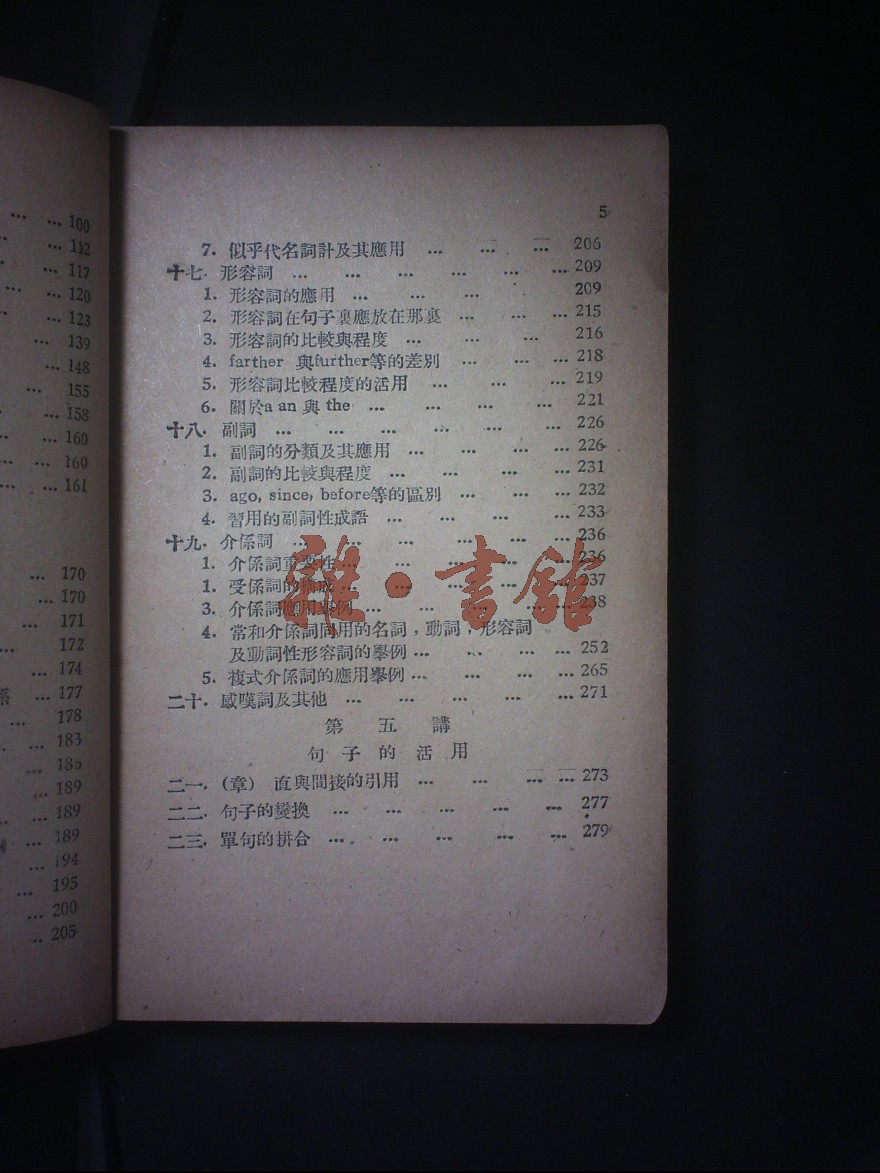 … … 100
… … 112
… 117
… 120
… 123
… 139
… 148
… 155
… 158
… 160
… 160
… … 161
… 170
… 170
… 171
… 172
… 174
係 … 177
… 178
… 183
… 189
… 189
… 189
… 194
… 195
… 200
… 205
5
7. 似乎代名詞計及其應用 … … … 206
十七. 形容詞 … … … … … … 209
1. 形容詞的應用 … … … 209
2. 形容詞在句子裏應放在那裏 … … … 215
3. 形容詞的比較與程度 … … … … 216
4. farther 與further等的差別 … … … 218
5. 形容詞比較程度的活用 … … … 219
6. 關於a an 與 the … … … … 221
十八. 副詞 … … … … … … 226
1. 副詞的分類及其應用 … … … … 226
2. 副詞的比較與程度 … … … … 231
3. ago, since, before等的區別 … … … 232
4. 習用的副詞性成語 … … … 233
十九. 介係詞 … … … … … … 236
1. 介係詞重要性 … … … … … 236
1. 受係詞的構成 … … … … … 237
3. 介係詞應用舉例 … … … … 238
4. 常和介係詞同用的名詞,動詞,形容詞
及動詞性形容詞的舉例 … … … … 252
5. 複式介係詞的應用舉例 … … … … 265
二十. 感嘆詞及其他 … … … … … 271
第五講
句子的活用
二一. (章) 直與間接的引用 … … … … 273
二二. 句子的變換 … … … … … 277
二三. 單句的拼合 … … … … … 279
雜·書館